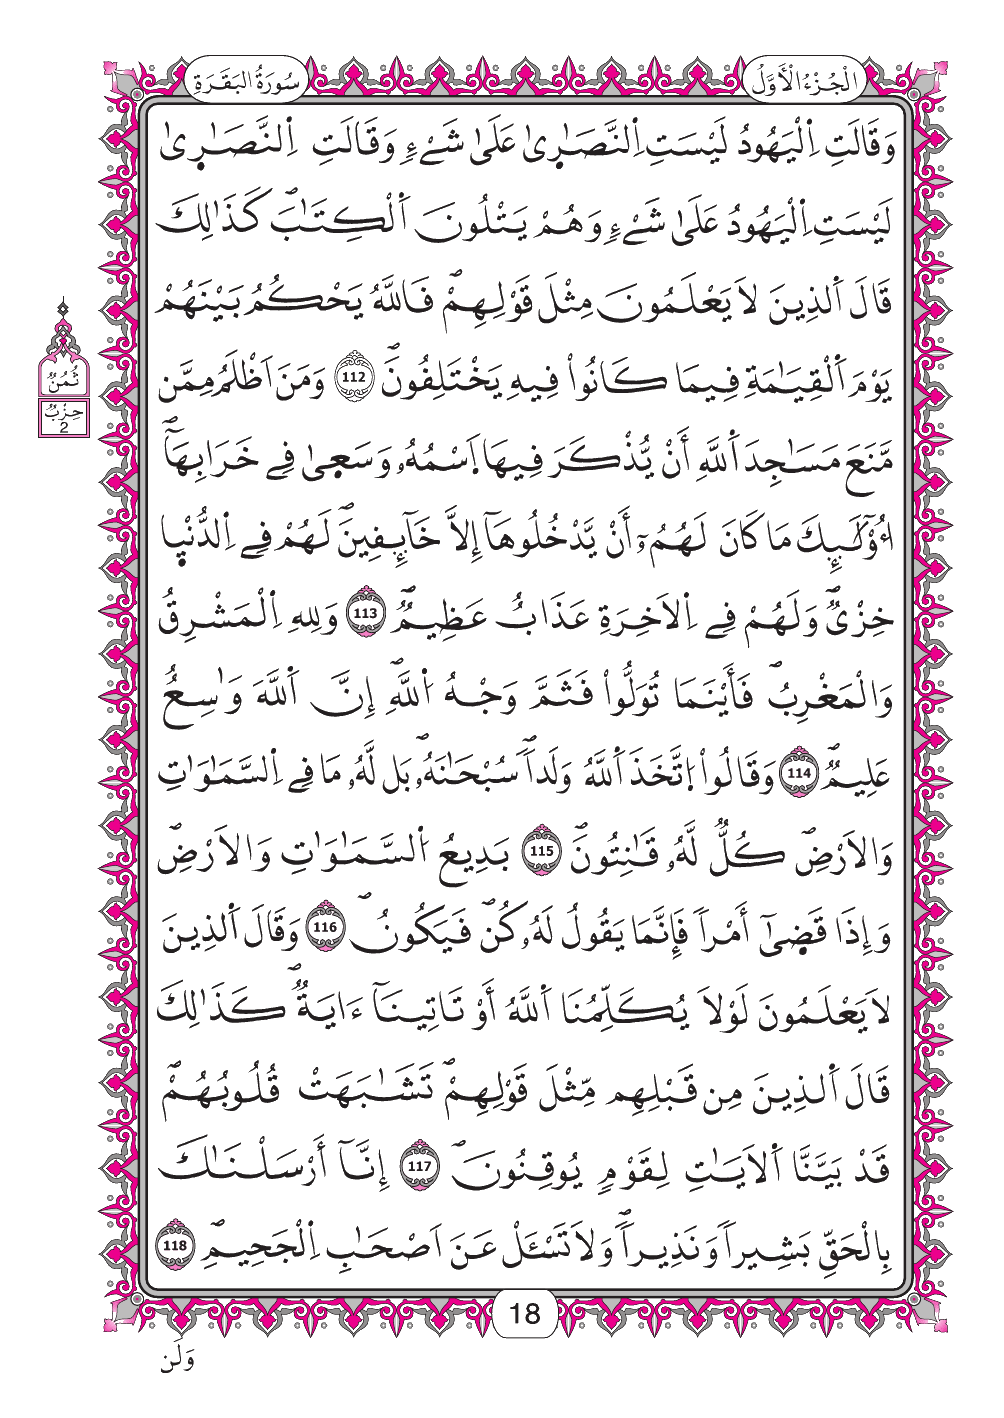 الْجُزْءُ الْأَوَّلُ
سُورَةُ الْبَقَرَةِ
وَقَالَتِ اِ۬لْيَهُودُ لَيْسَتِ اِ۬لنَّصَٰرٜيٰ عَلَيٰ شَےْءٖ وَقَالَتِ اِ۬لنَّصَٰرٜيٰ
لَيْسَتِ اِ۬لْيَهُودُ عَلَيٰ شَےْءٖ وَهُمْ يَتْلُونَ اَ۬لْكِتَٰبَۖ كَذَٰلِكَ
قَالَ اَ۬لذِينَ لَا يَعْلَمُونَ مِثْلَ قَوْلِهِمْۖ فَاللَّهُ يَحْكُمُ بَيْنَهُمْ
يَوْمَ اَ۬لْقِيَٰمَةِ فِيمَا كَانُواْ فِيهِ يَخْتَلِفُونَۖ 112 وَمَنَ اَظْلَمُ مِمَّن
ثُمُنُ
حِزْبٌ
2
مَّنَعَ مَسَٰجِدَ اَ۬للَّهِ أَنْ يُّذْكَرَ فِيهَا اَ۪سْمُهُۥ وَسَع۪يٰ فِے خَرَابِهَآۖ
أُوْلَٰٓئِكَ مَا كَانَ لَهُمُۥٓ أَنْ يَّدْخُلُوهَآ إِلَّا خَآئِفِينَۖ لَهُمْ فِے اِ۬لدُّنْي۪ا
خِزْيٞۖ وَلَهُمْ فِے اِ۬لَاخِرَةِ عَذَابٌ عَظِيمٞۖ 113 وَلِلهِ اِ۬لْمَشْرِقُ
وَالْمَغْرِبُۖ فَأَيْنَمَا تُوَلُّواْ فَثَمَّ وَجْهُ اُ۬للَّهِۖ إِنَّ اَ۬للَّهَ وَٰسِعٌ
عَلِيمٞۖ 114 وَقَالُواْ اُ۪تَّخَذَ اَ۬للَّهُ وَلَداٗۖ سُبْحَٰنَهُۥۖ بَل لَّهُۥ مَا فِے اِ۬لسَّمَٰوَٰتِ
وَالَارْضِۖ كُلّٞ لَّهُۥ قَٰنِتُونَۖ 115 بَدِيعُ اُ۬لسَّمَٰوَٰتِ وَالَارْضِۖ
وَإِذَا قَض۪يٰٓ أَمْراٗ فَإِنَّمَا يَقُولُ لَهُۥ كُنۖ فَيَكُونُۖ 116 وَقَالَ اَ۬لذِينَ
لَا يَعْلَمُونَ لَوْلَا يُكَلِّمُنَا اَ۬للَّهُ أَوْ تَاتِينَآ ءَايَةٞۖ كَذَٰلِكَ
قَالَ اَ۬لذِينَ مِن قَبْلِهِم مِّثْلَ قَوْلِهِمْۖ تَشَٰبَهَتْ قُلُوبُهُمْۖ
قَدْ بَيَّنَّا اَ۬لَايَٰتِ لِقَوْمٖ يُوقِنُونَۖ 117 إِنَّآ أَرْسَلْنَٰكَ
بِالْحَقِّ بَشِيراٗ وَنَذِيراٗۖ وَلَا تَسْـَٔلْ عَنَ اَصْحَٰبِ اِ۬لْجَحِيمِۖ 118
18
وَلَن